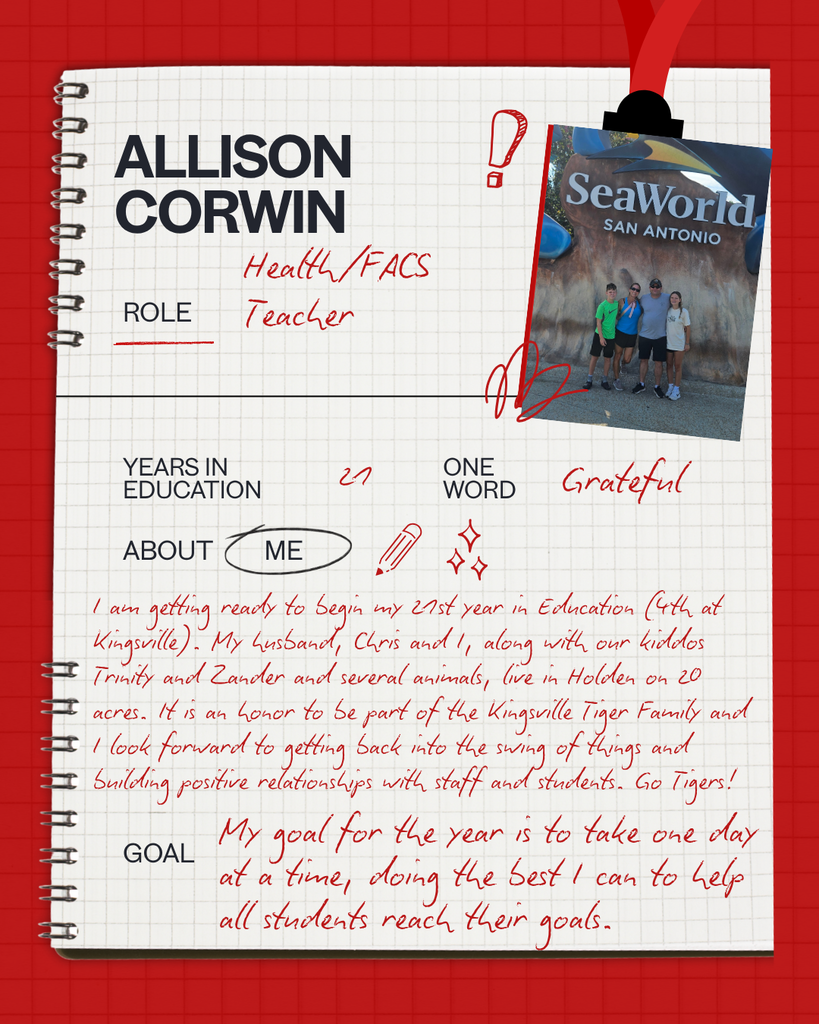 ALLISON
CORWIN
SeaWorld
SAN ANTONIO
ROLE
Health/FACS
Teacher
YEARS IN
EDUCATION
21
ONE
WORD
Grateful
ABOUT ME
I am getting ready to begin my 21st year in Education (4th at
Kingsville). My husband, Chris and I, along with our kiddos
Trinity and Zander and several animals, live in Holden on 20
acres. It is an honor to be part of the Kingsville Tiger Family and
I look forward to getting back into the swing of things and
building positive relationships with staff and students. Go Tigers!
GOAL
My goal for the year is to take one day
at a time, doing the best I can to help
all students reach their goals.